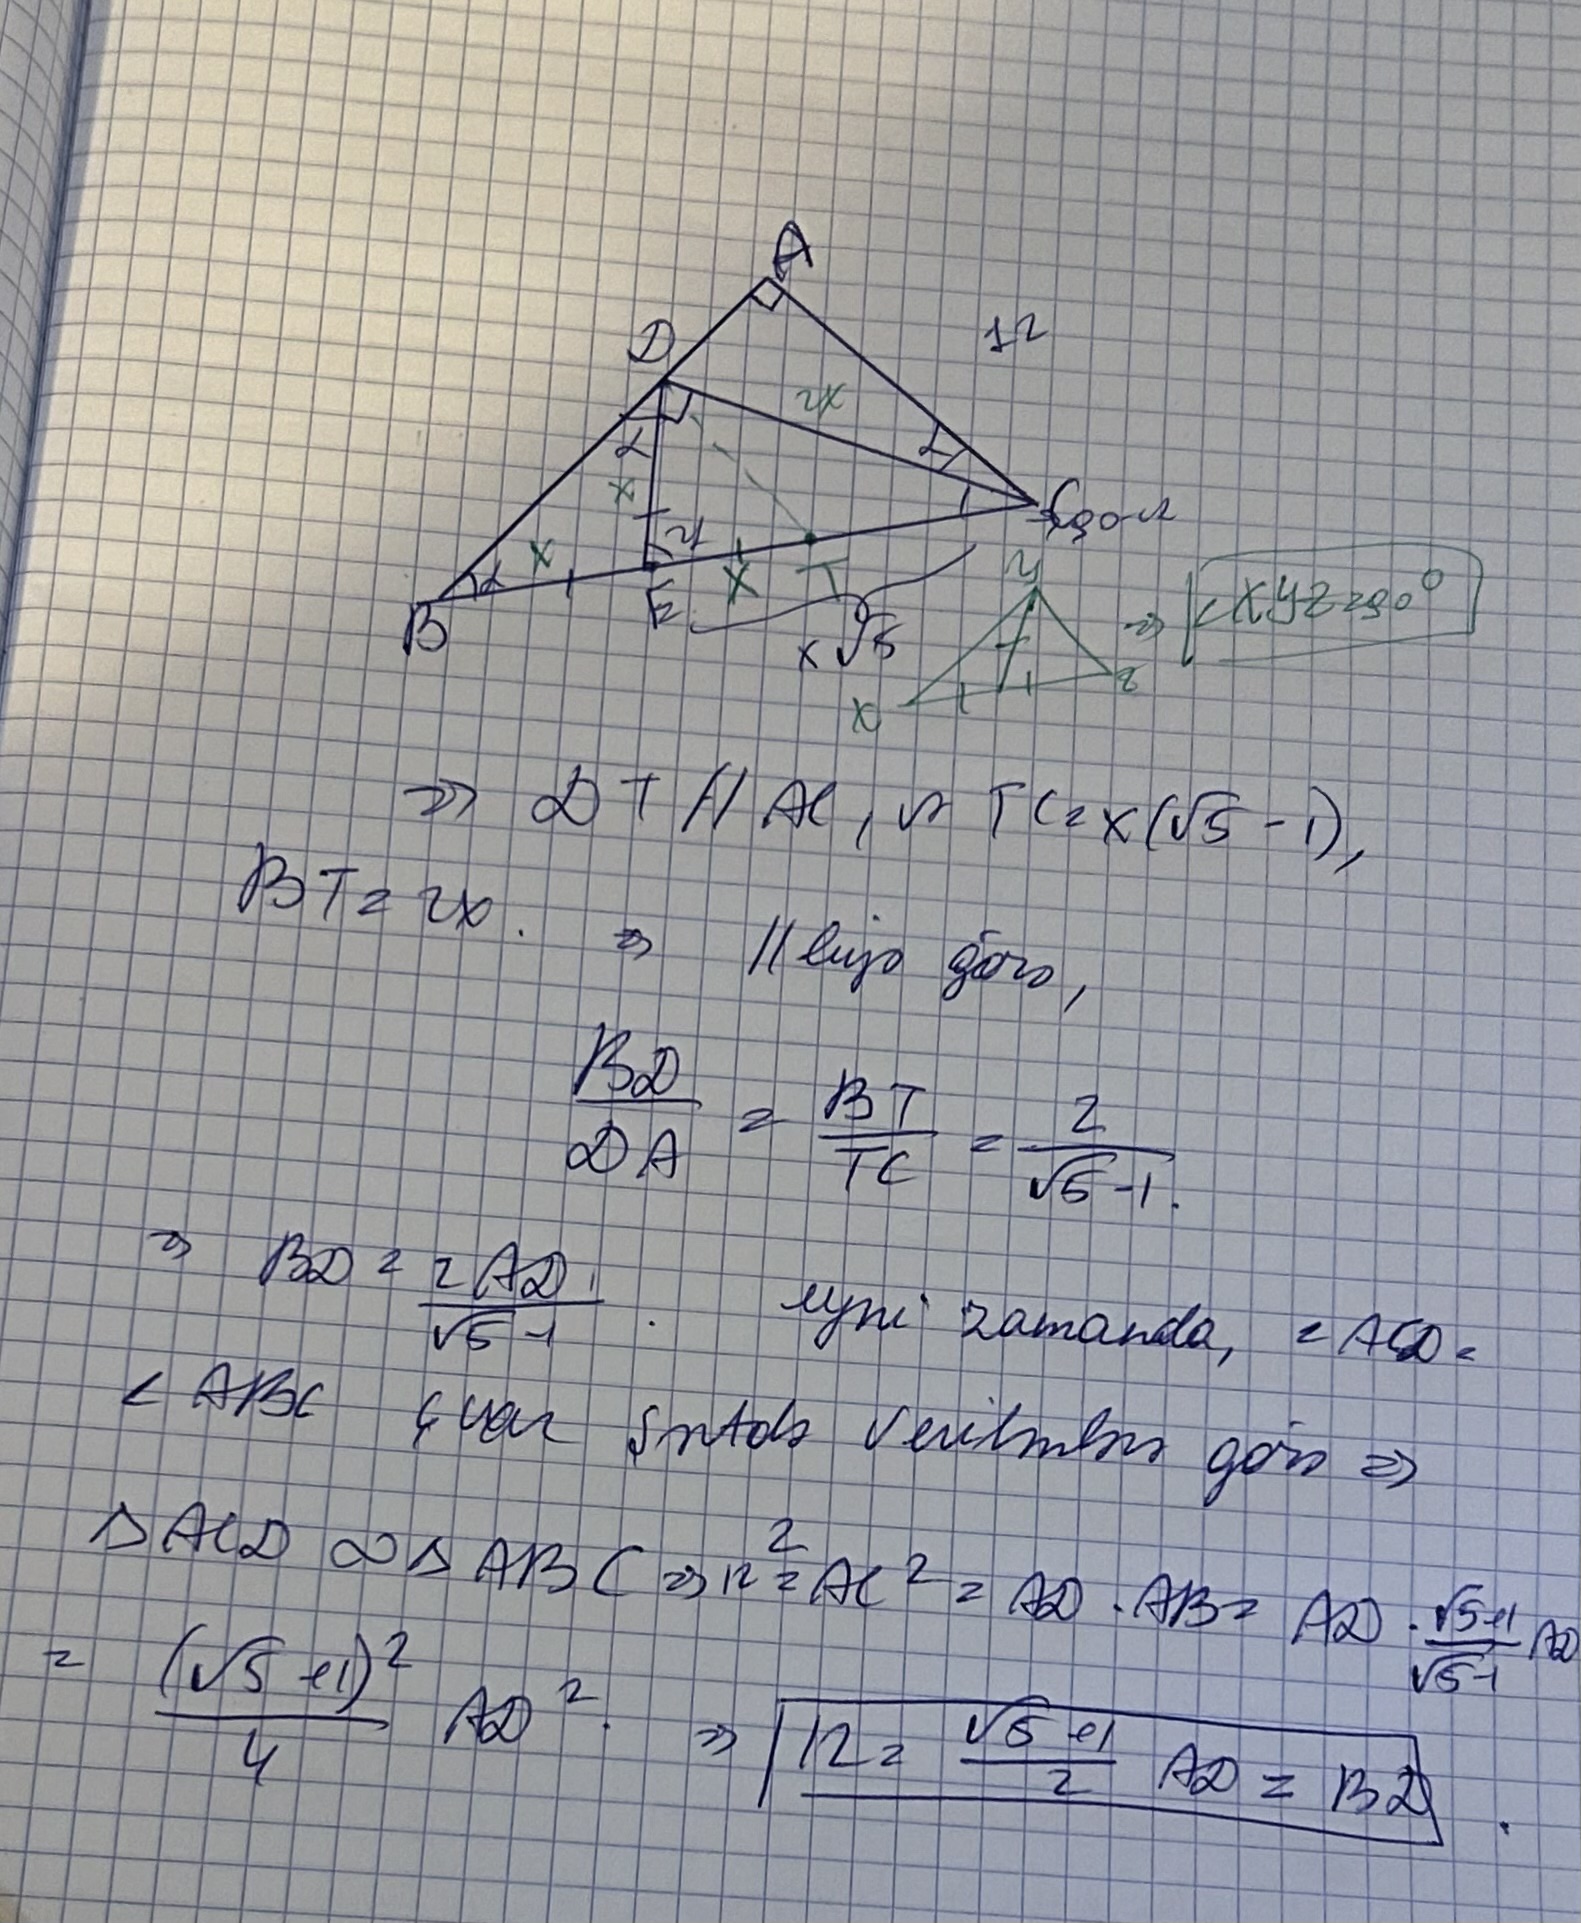 A
12
D
2x
α
α
x
x
α
2α
x
B
E
T
C
x√5
y
x
z
⇒ <XYZ=90°
⇒ DT // AC, və TC=x(√5-1),
BT=2x. ⇒ //liyə görə,
BD/DA = BT/TC = 2/(√5-1).
⇒ BD=2AD/(√5-1). eyni zamanda, <ACD=
<ABC şərtdə verilmləyə görə ⇒
△ACD ∽ △ABC ⇒ 12²=AC²=AD·AB=AD·(√5+1)/(√5-1) AD
= (√5+1)²/4 AD². ⇒ 12= (√5+1)/2 AD = BD.